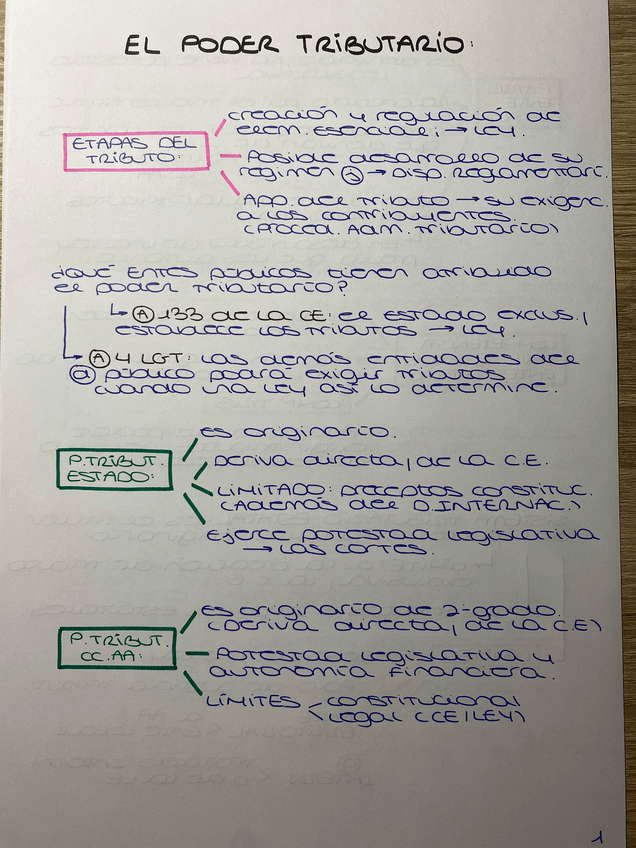 EL PODER TRIBUTARIO:
creación y regulación de
elem. esenciales → LEY.
ETAPAS DEL
TRIBUTO:
Posible desarrollo de su
régimen J → DISP. REGLAMENTARI.
APP. del TRIBUTO → su exigenc.
a los contribuyentes.
(PROCED. ADM. TRIBUTARIO)
¿QUÉ ENTES PÚBLICOS tienen atribuido
el poder TRIBUTARIO?
A 133 de la CE: el estado exclus.,
establece los tributos → LEY.
A 4 LGT: las demás entidades del
d público podrá exigir tributos
cuando una LEY así lo determine.
Es originario.
P. TRIBUT.
ESTADO:
DERIVA directa, de la C.E.
LIMITADO: preceptos constituc.
(Además del D. INTERNAC.)
Ejerce potestad legislativa
→ LAS CORTES.
Es originario de 2-grado.
(DERIVA directa, de la C.E)
P. TRIBUT.
CC.AA:
Potestad legislativa y
autonomía financiera.
LÍMITES constitucional
legal (CE/LEY)
1